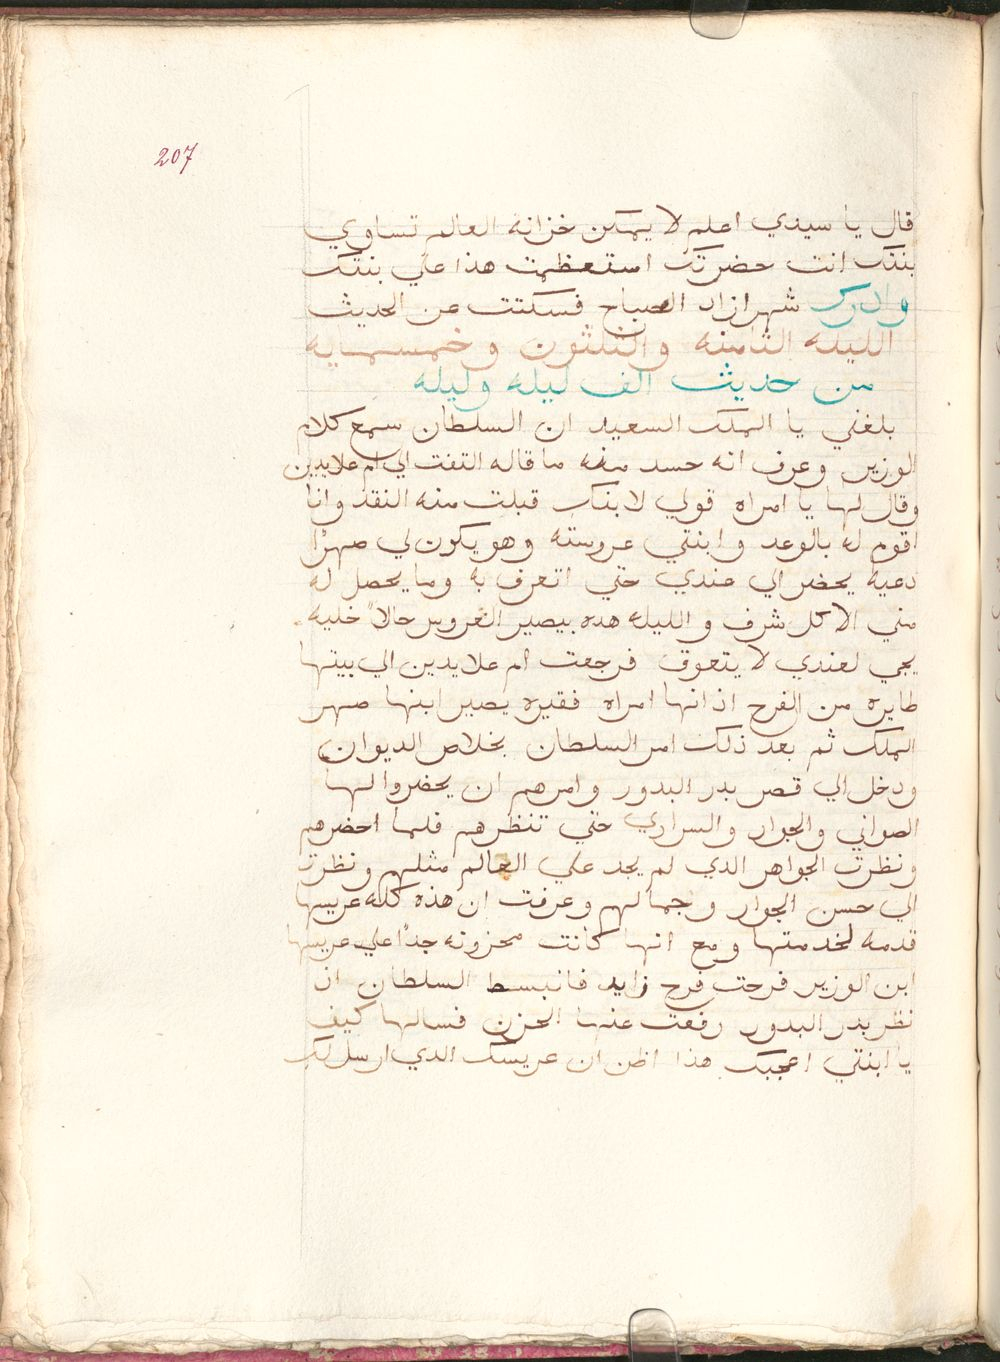 207
قال يا سيدي اعلم لا يمكن خزانة العالم تساوي
بنتك انت حضرتك استعظمت هذا علي بنتك
وادرك شهرازاد الصباح فسكتت عن الحديث
الليله الثامنه والثلثون وخمسمايه
من حديث الف ليله وليله
بلغني يا الملك السعيد ان السلطان سمع كلام
الوزير وعرف انه حسد منه ما قاله التفت الي ام علايدين
وقال لها يا امراه قولي لابنك قبلت منه النقد وانا
اقوم له بالوعد وابنتي عروسته وهو يكون لي صهرًا
دعيه يحضر الي عندي حتي اتعرف به وما يحصل له
مني الا كل شرف والليله هده بيصير العروس حالاً خليه
يجي لعندي لا يتعوق فرجعت ام علايدين الي بيتها
طايره من الفرح اذ انها امراه فقيره يصير ابنها صهر
الملك ثم بعد ذلك امر السلطان بخلاص الديوان
ودخل الي قصر بدر البدور وامرهم ان يحضروا لها
الصواني والجوار والسراري حتي تنظرهم فلما احضرهم
ونظرت الجواهر الدي لم يجد علي العالم مثلهم ونظرت
الي حسن الجوار وجمالهم وعرفت ان هذه كله عريسها
قدمه لخدمتها ومع انها كانت محزونه جدًا علي عريسها
ابن الوزير فرحت فرح زايد فانبسط السلطان ان
نظر بدر البدور رفعت عنها الحزن فسالها كيف
يا ابنتي اعجبك هذا اظن ان عريسك الدي ارسل لك